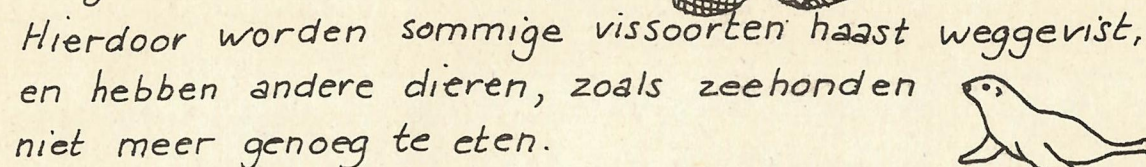 Hierdoor worden sommige vissoorten haast weggevist,
en hebben andere dieren, zoals zeehonden
niet meer genoeg te eten.